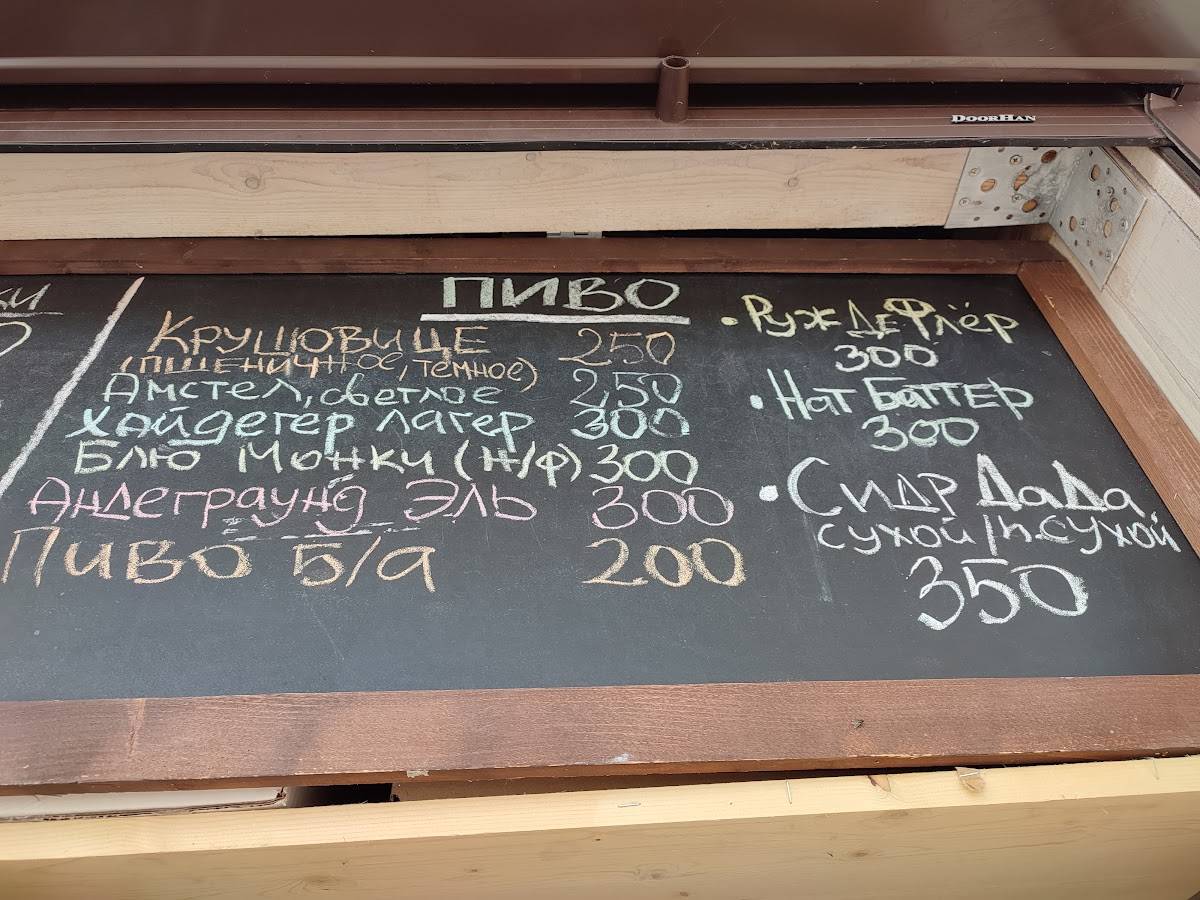 DOORHAN
ПИВО
КРУШОВИЦЕ 250
(ПШЕНИЧНОЕ, ТЕМНОЕ)
Амстел, светлое 250
Хайдегер лагер 300
Блю Монки (н/ф) 300
Андеграунд Эль 300
Пиво б/а 200
• Руж Де Флёр
300
• Нат Баттер
300
• Сидр ДаДа
сухой/п.сухой
350